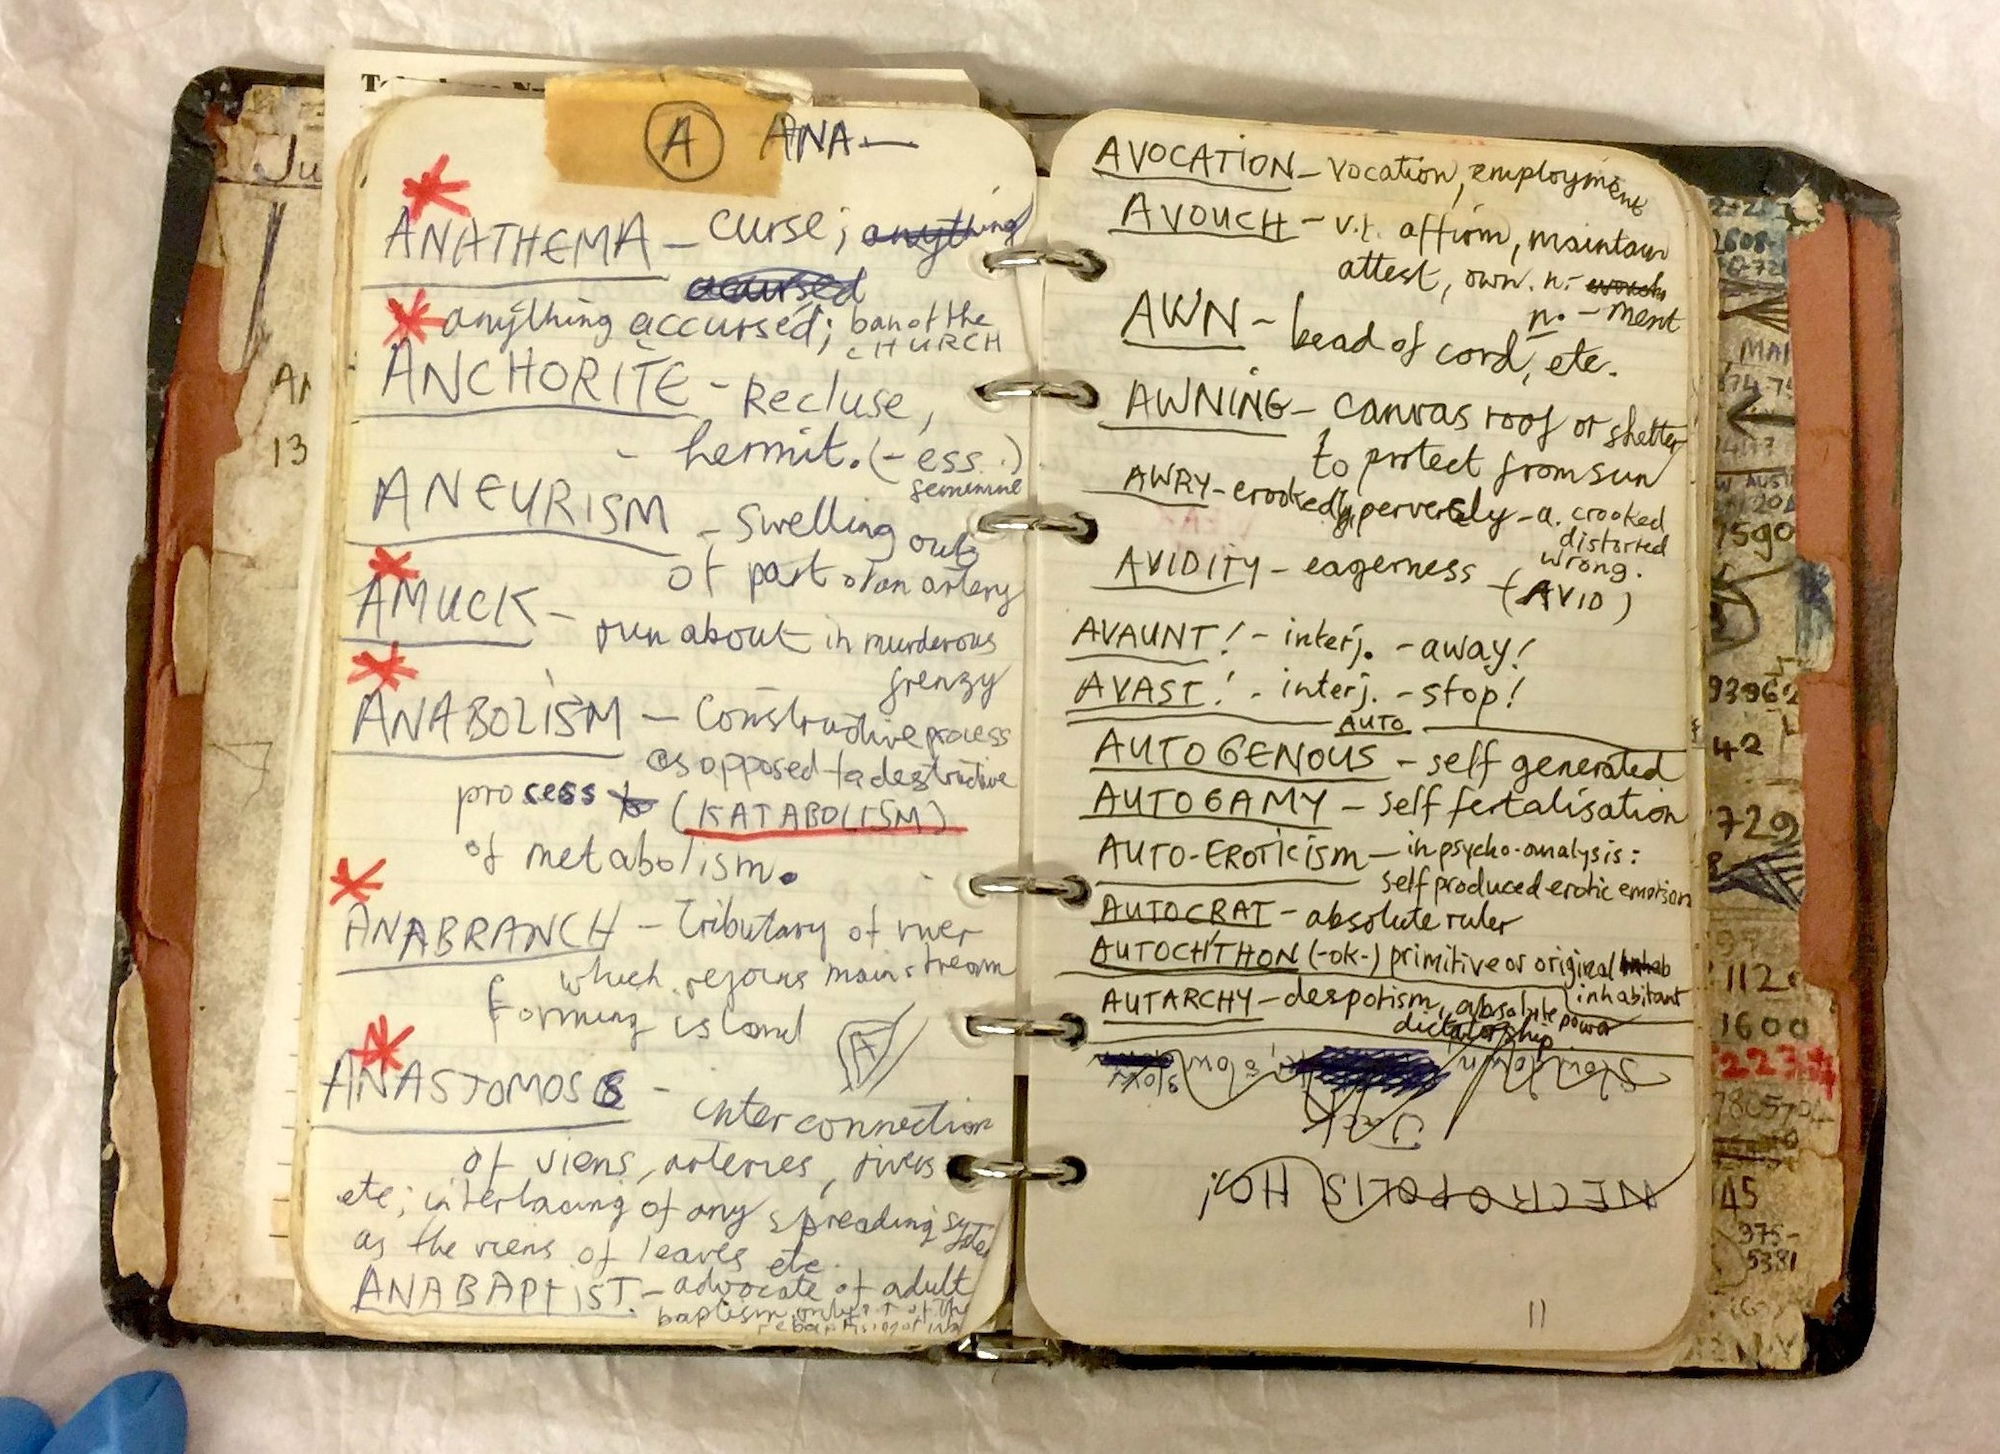 A ANA—
ANATHEMA — curse; anything
accursed
anything accursed; ban of the
CHURCH
ANCHORITE - Recluse,
- hermit. (-ess.)
femenine
ANEURISM - swelling out
of part of an artery
AMUCK - run about in murderous
frenzy
ANABOLISM — Constructive process
as opposed to a destructive
process to (KATABOLISM)
of metabolism.
ANABRANCH - Tributary of river
which rejoins mainstream
forming island
A
ANASTOMOSIS - interconnection
of viens, arteries, rivers
etc; interlacing of any spreading system
as the viens of leaves etc.
ANABAPTIST. - advocate of adult
baptism only
AVOCATION - vocation, employment
AVOUCH - v.t. affirm, maintain
attest, own. n.
n. - ment
AWN - bead of cord, etc.
AWNING - canvas roof or shelter
to protect from sun
AWRY - crookedly, perversly - a. crooked
distorted
wrong.
AVIDITY - eagerness - (AVID)
AVAUNT! - interj. - away!
AVAST! - interj. - stop!
AUTO
AUTOGENOUS - self generated
AUTOGAMY - self fertalisation
AUTO-EROTICISM - in psycho-analysis:
self produced erotic emotion
AUTOCRAT - absolute ruler
AUTOCHTHON (-ok-) primitive or original inhab
inhabitant
AUTARCHY - despotism, absolute power
dictatorship
Slow down
Jack
NECROPOLIS
11
13
7590
93962
42
729
112
1600
223
45
375-
5381